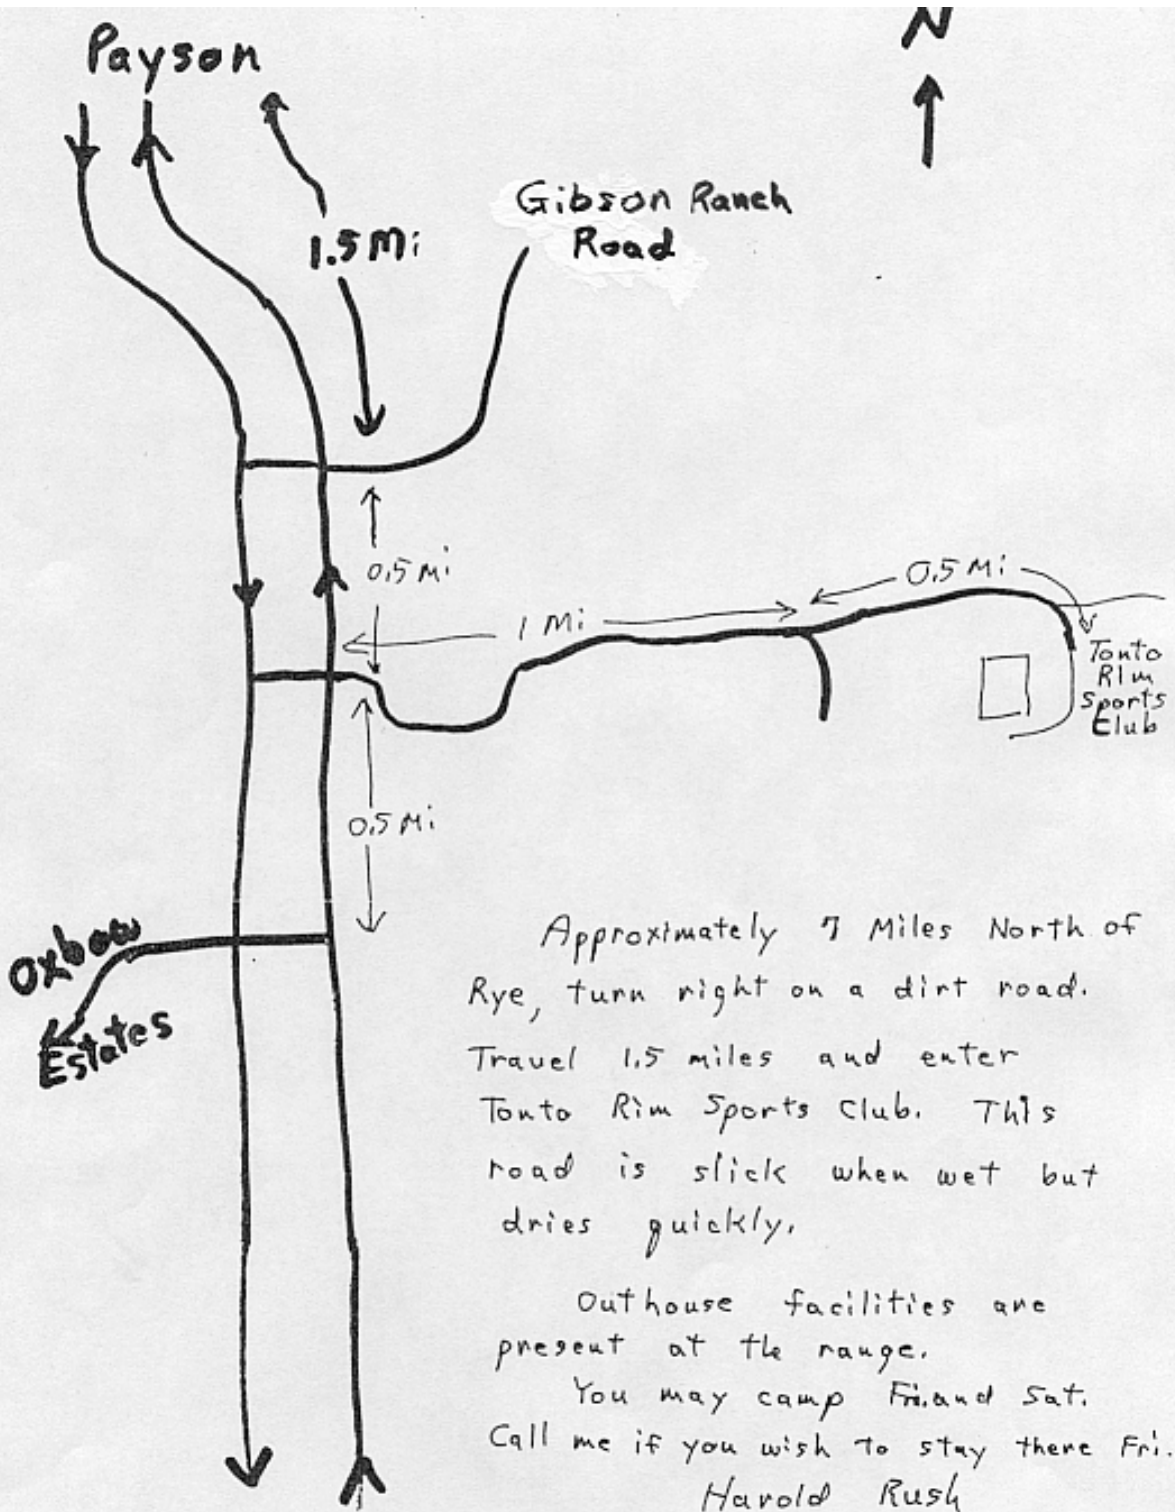 N
Payson
Gibson Ranch
Road
1.5 Mi
0.5 Mi
0.5 Mi
1 Mi
Tonto
Rim
Sports
Club
0.5 Mi
Oxbow
Estates
Approximately 7 Miles North of
Rye, turn right on a dirt road.
Travel 1.5 miles and enter
Tonto Rim Sports Club. This
road is slick when wet but
dries quickly.
Outhouse facilities are
present at the range.
You may camp Fri. and Sat.
Call me if you wish to stay there Fri.
Harold Rush